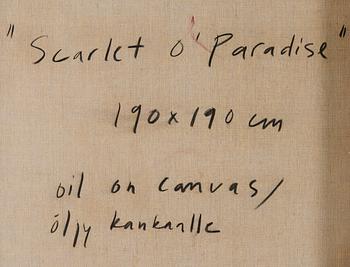 "Scarlet O' Paradise"
190x190 cm
oil on canvas/
öljy kankaalle